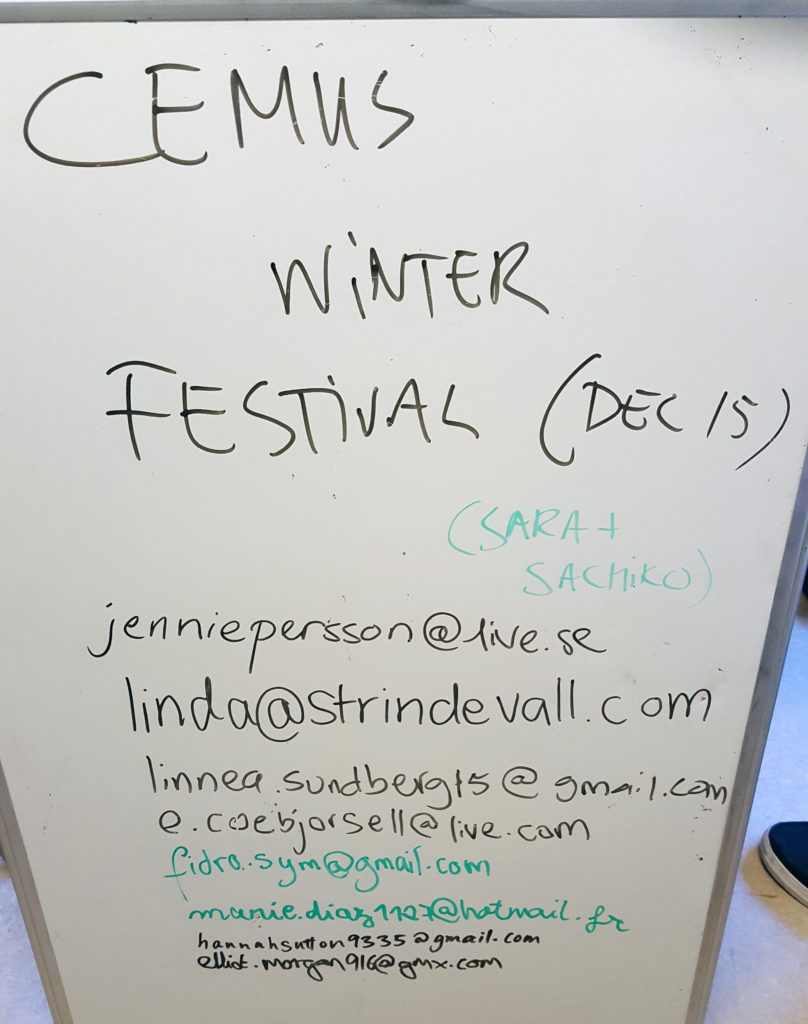 CEMUS
WINTER
FESTIVAL (DEC 15)
(SARA +
SACHIKO)
jenniepersson@live.se
linda@strindevall.com
linnea.sundberg15@gmail.com
e.coebjorsell@live.com
fidra.sym@gmail.com
marie.diaz1127@hotmail.fr
hannahsutton9335@gmail.com
elliot.morgan916@gmx.com